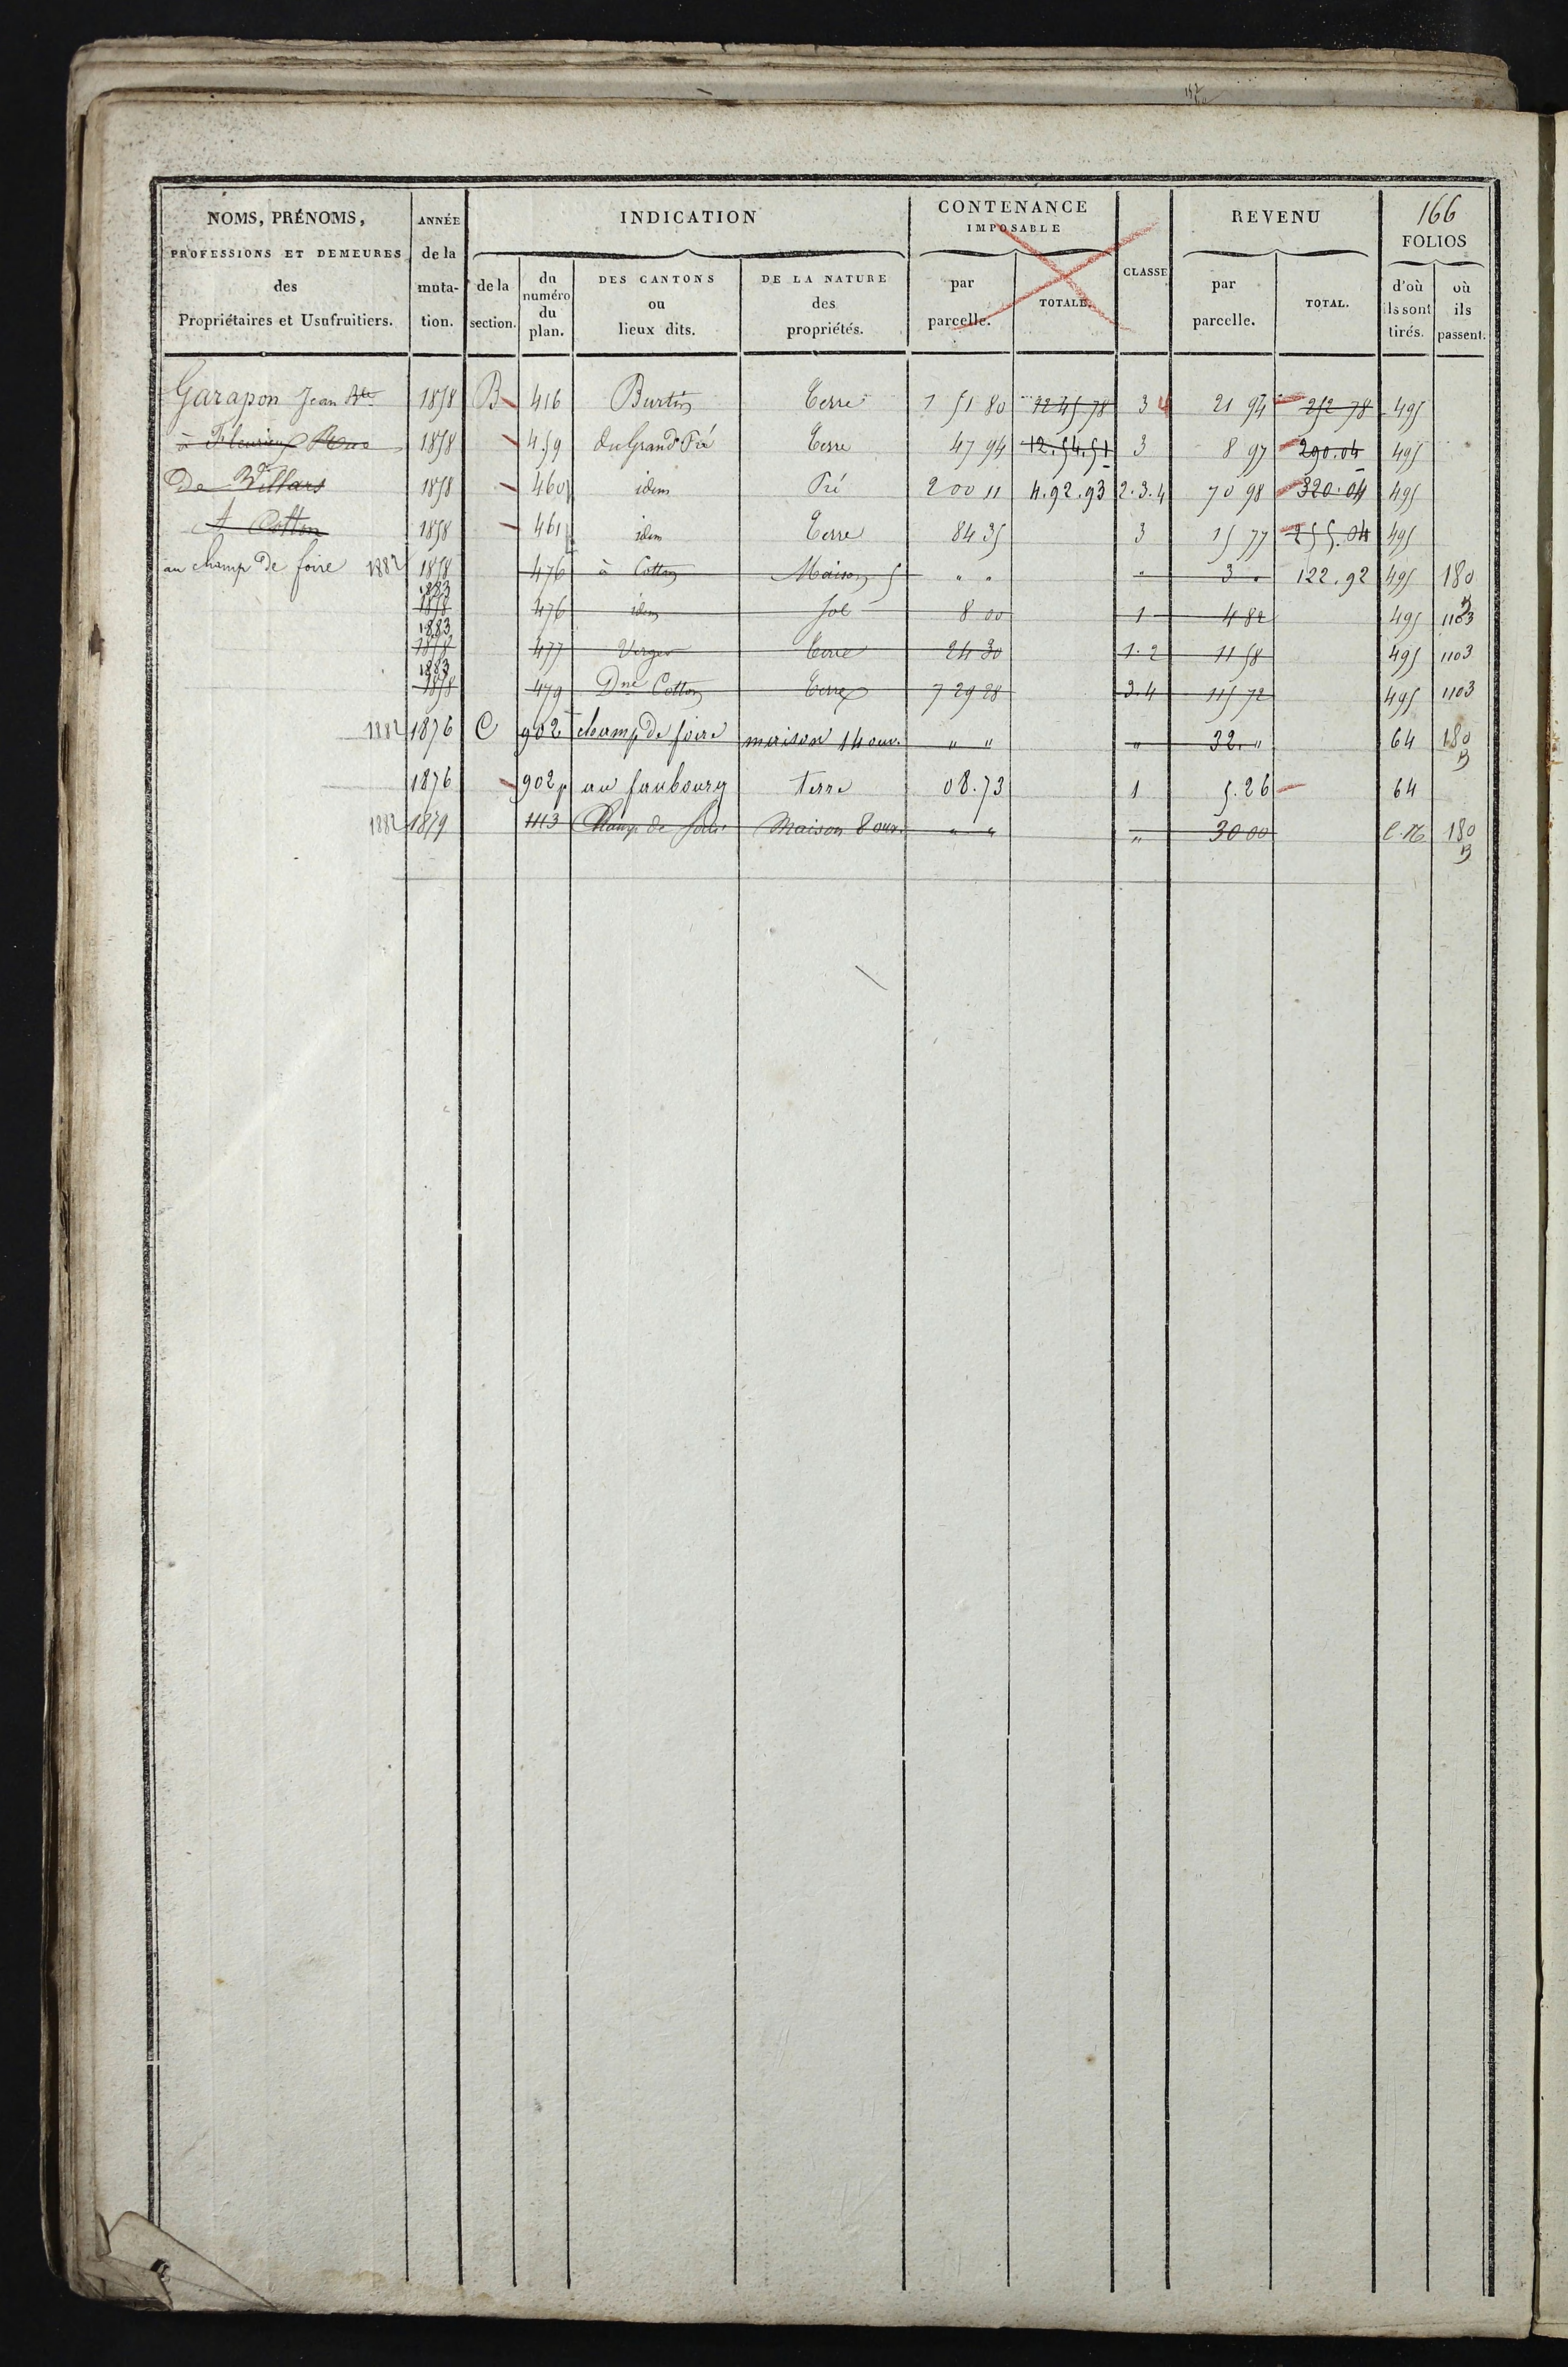 166
NOMS, PRÉNOMS, PROFESSIONS ET DEMEURES des Propriétaires et Usufruitiers.
ANNÉE de la muta- tion.
INDICATION
de la section.
du numéro du plan.
DES CANTONS ou lieux dits.
DE LA NATURE des propriétés.
CONTENANCE IMPOSABLE
par parcelle.
TOTALE.
CLASSE
REVENU
par parcelle.
TOTAL.
FOLIOS
d'où ils sont tirés.
où ils passent.
Garapon Jean Bte 1858 B 416 Burtin Terre 1 51 80 12 45 78 3 4 21 94 252 78 495
à Fleurieux 1858 459 du Grand Pré Terre 47 94 12.54.51 3 8 97 290.04 495
De Villars 1858 460 idem Pré 2 00 11 4.92.93 2.3.4 70 98 320.04 495
A Cotton 1858 461 idem Terre 84 35 3 15 77 255.04 495
au champ De foire 1882 1858 476 à Cotton Maison 5 " " " 3 " 122.92 495 180 B
1883 1858 476 idem Sol 8 00 1 4 82 495 1103
1883 1858 477 Verger Terre 24 30 1.2 11 58 495 1103
1883 1858 479 Dne Cotton Terre 7 29 28 3.4 115 72 495 1103
1882 1876 C 902 champ De foire maison 14 ouv. " " " 32. " 64 180 B
1876 902p au faubourg terre 08.73 1 5.26 64
1882 1879 1113 Champ de foire Maison 8 ouv. " " " 30 00 C.N 180 B